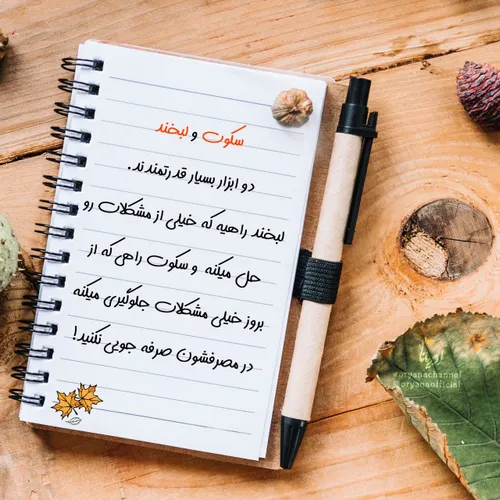 سکوت و لبخند
دو ابزار بسیار قدرتمندند.
لبخند راهیه که خیلی از مشکلات رو
حل میکنه و سکوت راهی که از
بروز خیلی مشکلات جلوگیری میکنه
در مصرفشون صرفه جویی نکنید!
@oryanachannel
@oryanaofficial